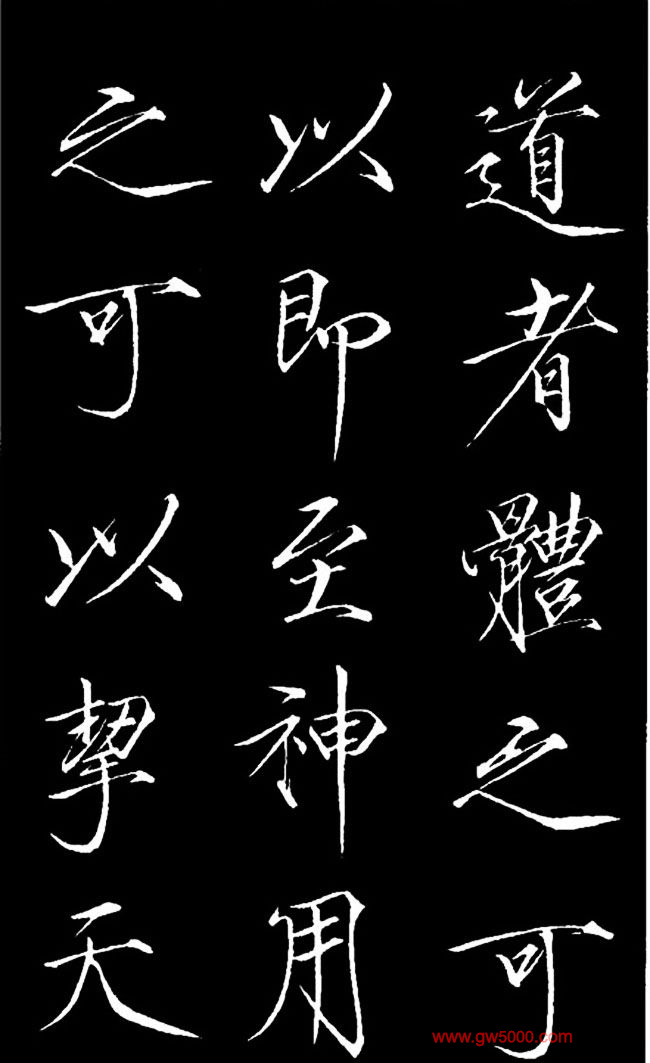 道者體之可
以即至神用
之可以挈天
www.gw5000.com